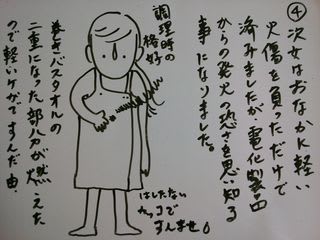 ④ 次女はおなかに軽い
火傷を負っただけで
済みましたが、電化製品
からの発火の恐さを思い知る
事になりました。
調理時の
格好
巻きバスタオルの
二重になった部分が燃えた
ので軽いケガですんだ由。
はしたない
カッコで
すんません